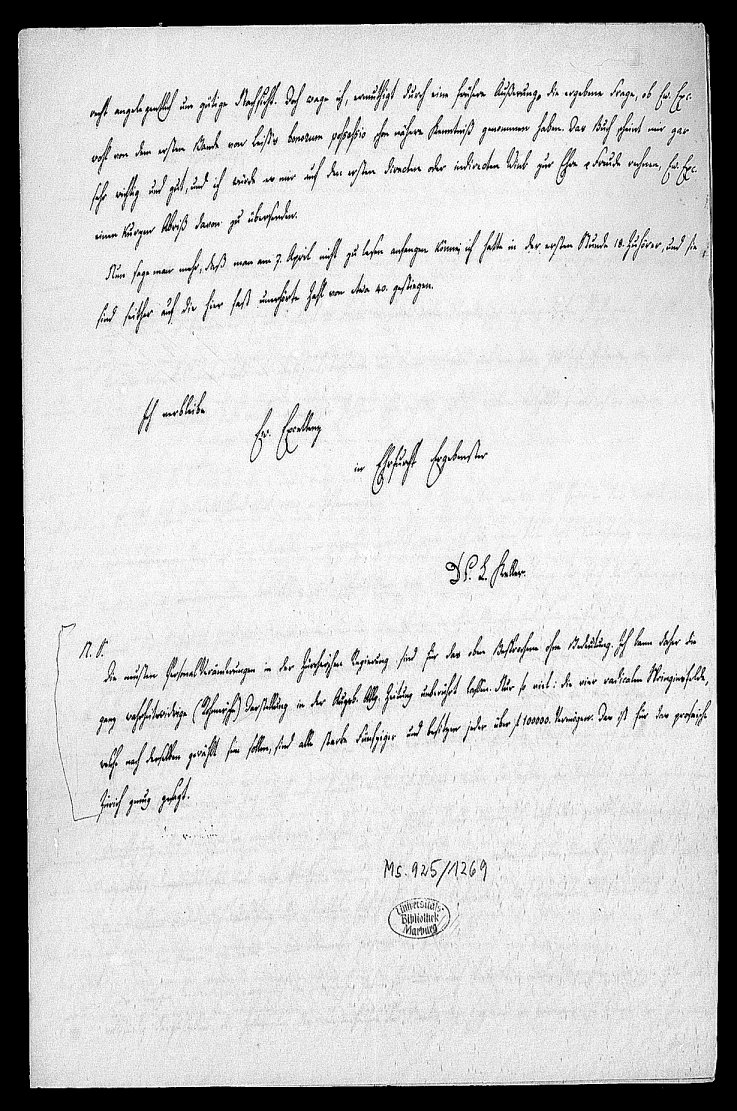 recht angelegentlich um gütige Nachsicht. Doch wage ich, ermuthigt durch eine frühere Äußerung, die ergebene Frage, ob Ew. Exc.
wohl von dem ersten Bande von Leist's bonorum possessio schon nähere Kenntniß genommen haben. Das Buch scheint mir gar
sehr wichtig und gut, und ich würde es mir auf den ersten directen oder indirecten Wink zur Ehre u Freude rechnen, Ew. Exc.
einen kurzen Abriß davon zu übersenden.
Nun sage man mehr, daß man am 7. April nicht zu lesen anfangen könne, ich hatte in der ersten Stunde 18. Zuhörer, und sie
sind seither auf die hier fast unerhörte Zahl von etwa 40. gestiegen.
Ich verbleibe
Ew. Excellenz
in Ehrfurcht Ergebenster
Dr. L. Keller.
N. S.
Die neusten Personal Veränderungen in der Zürcherischen Regierung sind für das oben Besprochene ohne Bedeutung. Ich kann daher die
ganz wahrheitswidrige Darstellung in der Augsb. Allg. Zeitung unberührt lassen. Nur so viel: die vier radicalen Springinsfelde,
welche nach derselben gewählt sein sollen, sind alle starke Fünfziger und besitzen jeder über f 100000. Vermögen. Das ist für das prosaische
Zürich genug gesagt.
Ms. 925/1269
Universitäts
Bibliothek
Marburg